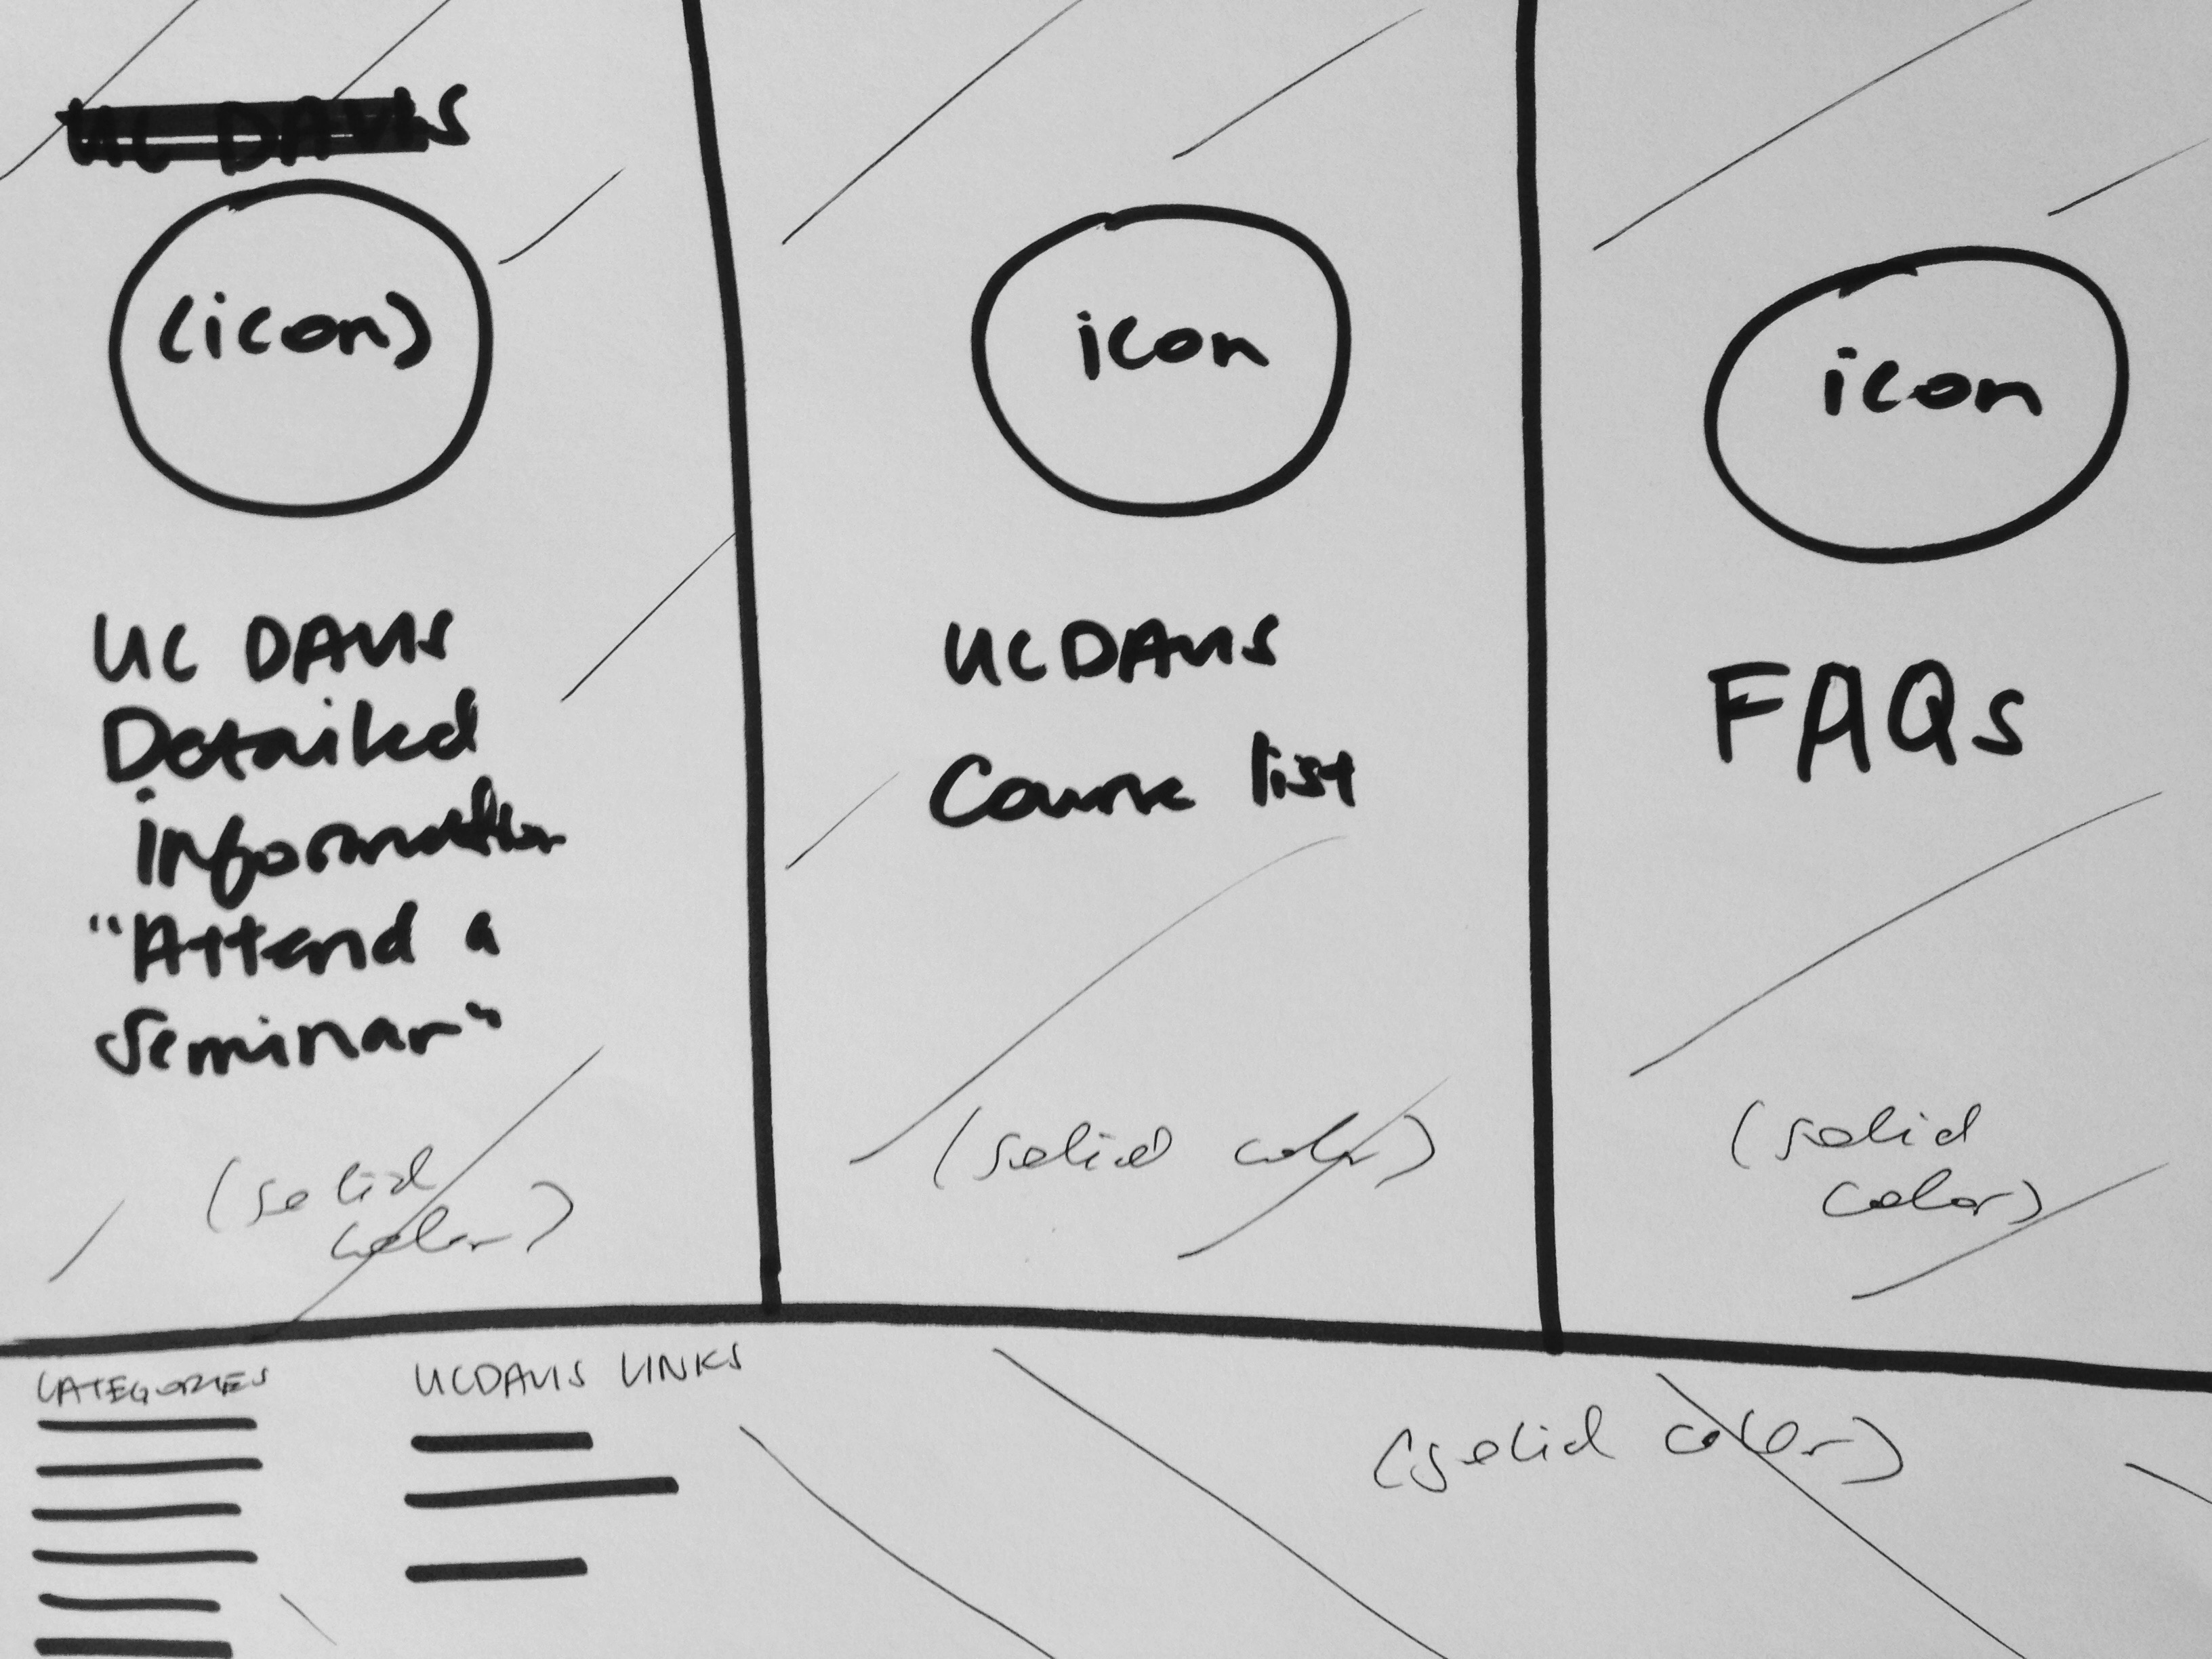 UC DAVIS
(icon)
UC DAVIS
Detailed
information
"Attend a
Seminar"
(solid
color)
icon
UCDAVIS
Course list
(solid color)
icon
FAQs
(solid
color)
CATEGORIES
UCDAVIS LINKS
(solid color)